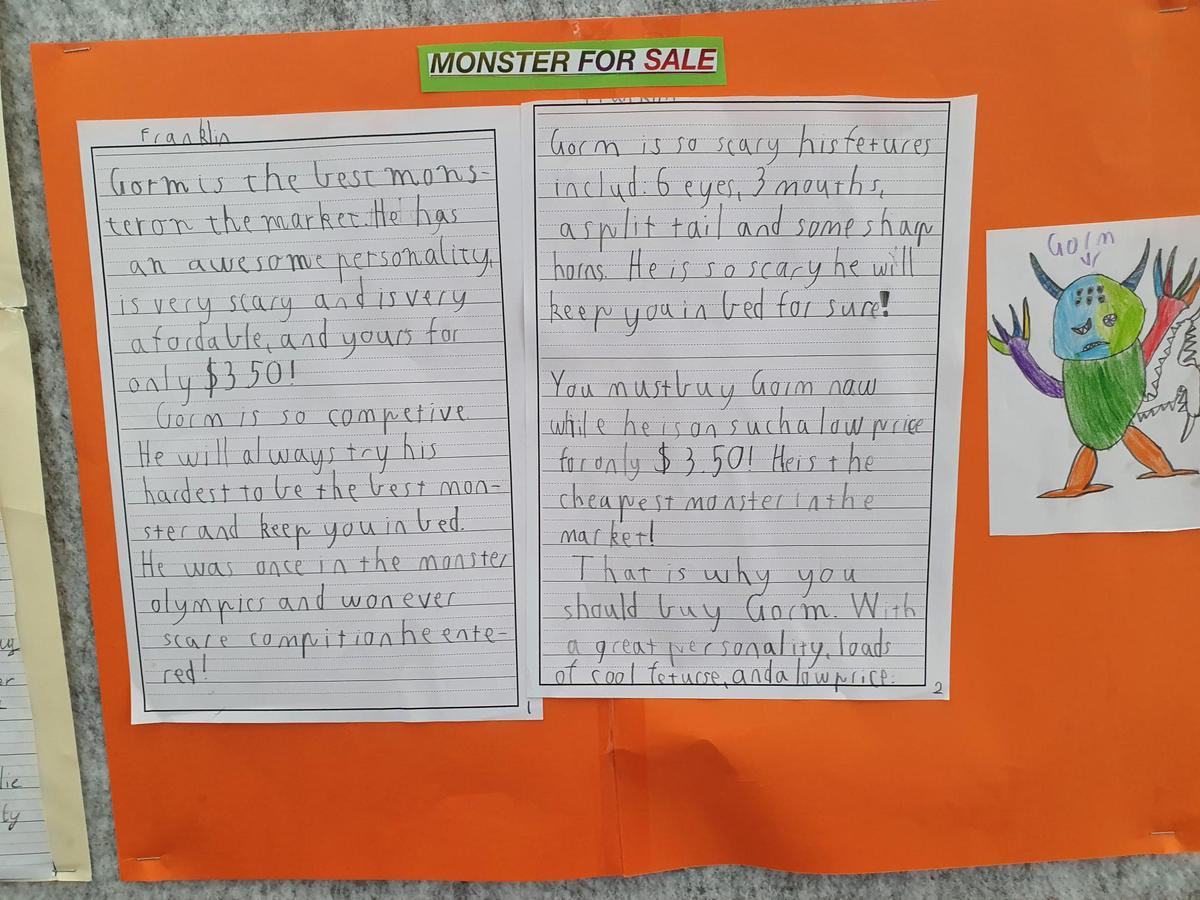 MONSTER FOR SALE
Franklin
Gorm is the best mons-
ter on the market. He has
an awesome personality,
is very scary and is very
afordable, and yours for
only $3.50!
Gorm is so competive
He will always try his
hardest to be the best mon-
ster and keep you in bed.
He was once in the monster
olympics and won ever
scare compition he ente-
red!
1
Gorm is so scary his fetures
includ: 6 eyes, 3 mouths,
a split tail and some sharp
horns. He is so scary he will
keep you in bed for sure!
You must buy Gorm now
while he is on such a low price
for only $3.50! He is the
cheapest monster in the
market!
That is why you
should buy Gorm. With
a great personality, loads
of cool feturse, and a low price.
2
Gorm